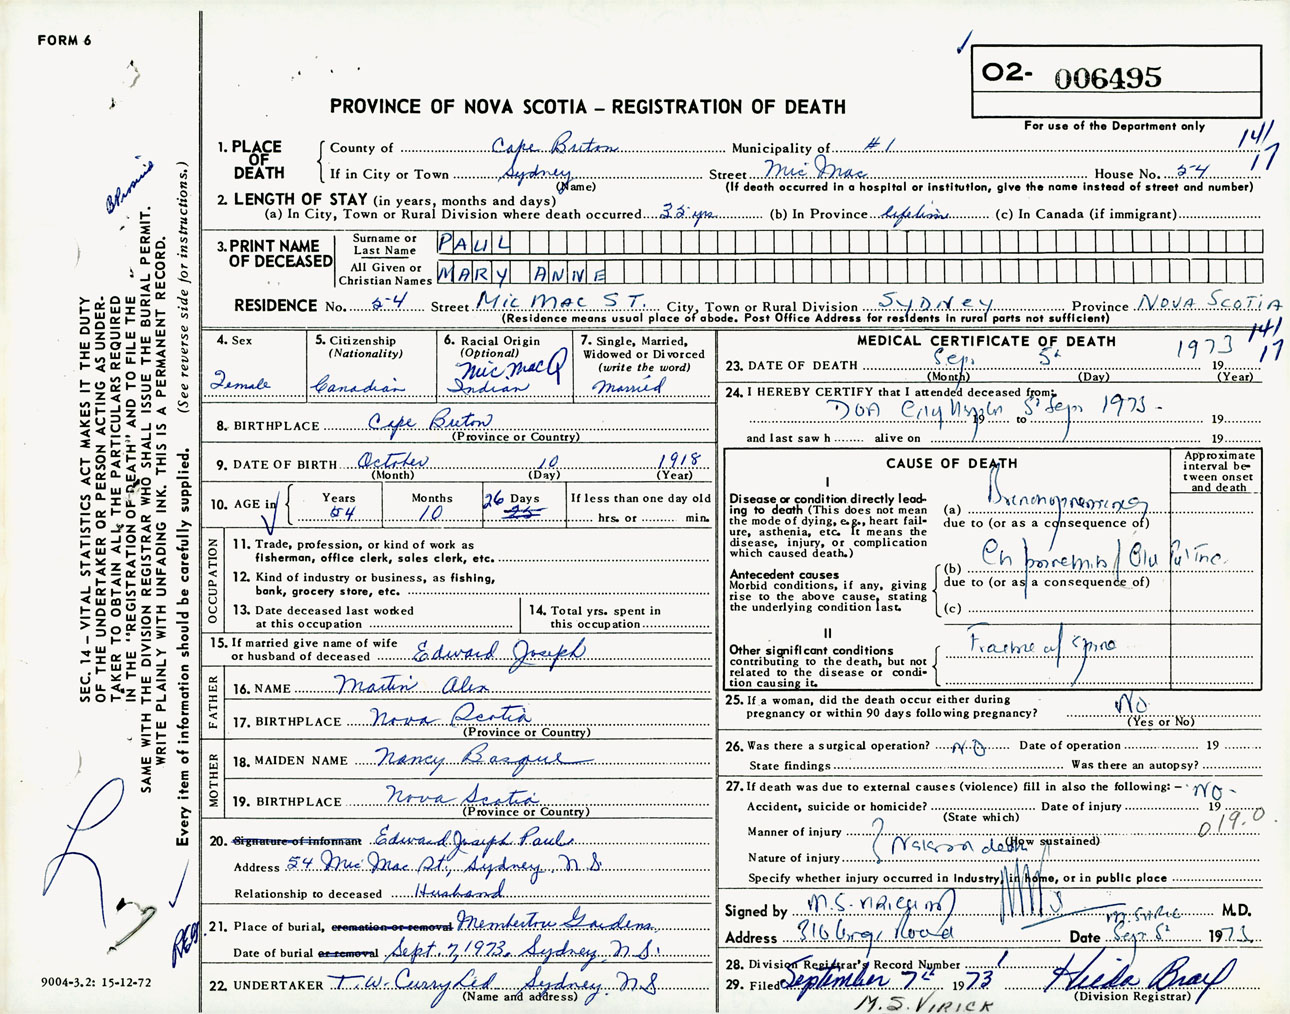 FORM 6
O2- 006495
For use of the Department only
PROVINCE OF NOVA SCOTIA – REGISTRATION OF DEATH
141
17
1. PLACE OF DEATH
County of Cape Breton Municipality of #1
If in City or Town Sydney Street Mic Mac House No. 54
(Name) (If death occurred in a hospital or institution, give the name instead of street and number)
2. LENGTH OF STAY (in years, months and days)
(a) In City, Town or Rural Division where death occurred 35 yrs (b) In Province lifetime (c) In Canada (if immigrant)
3. PRINT NAME OF DECEASED
Surname or Last Name PAUL
All Given or Christian Names MARY ANNE
RESIDENCE No. 54 Street MIC MAC ST. City, Town or Rural Division SYDNEY Province NOVA SCOTIA
(Residence means usual place of abode. Post Office Address for residents in rural parts not sufficient)
4. Sex
Female
5. Citizenship
(Nationality)
Canadian
6. Racial Origin
(Optional)
Mic Mac
Indian
7. Single, Married,
Widowed or Divorced
(write the word)
Married
8. BIRTHPLACE Cape Breton
(Province or Country)
9. DATE OF BIRTH October 10 1918
(Month) (Day) (Year)
10. AGE in
Years Months Days If less than one day old
54 10 26 25 hrs. or min.
OCCUPATION
11. Trade, profession, or kind of work as
fisherman, office clerk, sales clerk, etc.
12. Kind of industry or business, as fishing,
bank, grocery store, etc.
13. Date deceased last worked
at this occupation
14. Total yrs. spent in
this occupation
15. If married give name of wife
or husband of deceased Edward Joseph
FATHER
16. NAME Martin Alex
17. BIRTHPLACE Nova Scotia
(Province or Country)
MOTHER
18. MAIDEN NAME Nancy Basque
19. BIRTHPLACE Nova Scotia
(Province or Country)
20. Signature of informant Edward Joseph Paul
Address 54 Mic Mac St., Sydney, N.S.
Relationship to deceased Husband
21. Place of burial, cremation or removal Membertou Gardens
Date of burial or removal Sept. 7, 1973. Sydney, N.S.
22. UNDERTAKER T.W. Curry Ltd Sydney, N.S
(Name and address)
MEDICAL CERTIFICATE OF DEATH
141
17
23. DATE OF DEATH Sep. 5 1973 19
(Month) (Day) (Year)
24. I HEREBY CERTIFY that I attended deceased from:
DOA City Hospital 5 Sept 1973 19 to 19
and last saw h alive on 19
CAUSE OF DEATH
Approximate
interval be-
tween onset
and death
I
Disease or condition directly lead-
ing to death (This does not mean
the mode of dying, e.g., heart fail-
ure, asthenia, etc. It means the
disease, injury, or complication
which caused death.)
(a) Bronchopneumonia
due to (or as a consequence of)
Antecedent causes
Morbid conditions, if any, giving
rise to the above cause, stating
the underlying condition last.
(b)
due to (or as a consequence of)
(c)
II
Other significant conditions
contributing to the death, but not
related to the disease or condi-
tion causing it.
Fracture of Spine
25. If a woman, did the death occur either during
pregnancy or within 90 days following pregnancy? NO
(Yes or No)
26. Was there a surgical operation? NO Date of operation 19
State findings Was there an autopsy?
27. If death was due to external causes (violence) fill in also the following: – NO –
Accident, suicide or homicide? Date of injury 19
(State which)
019.0
Manner of injury
(How sustained)
Nature of injury
Natural death
Specify whether injury occurred in Industry, in home, or in public place
Signed by M.S. VIRICK M.D.
Address 316 Road Date Sept 5 1973
28. Division Registrar's Record Number
29. Filed September 7th 1973 Hilda Bray
(Division Registrar)
M.S. VIRICK
SEC. 14 – VITAL STATISTICS ACT MAKES IT THE DUTY
OF THE UNDERTAKER OR PERSON ACTING AS UNDER-
TAKER TO OBTAIN ALL THE PARTICULARS REQUIRED
IN THE "REGISTRATION OF DEATH" AND TO FILE THE
SAME WITH THE DIVISION REGISTRAR WHO SHALL ISSUE THE BURIAL PERMIT.
WRITE PLAINLY WITH UNFADING INK. THIS IS A PERMANENT RECORD.
Every item of information should be carefully supplied. (See reverse side for instructions.)
9004-3.2: 15-12-72